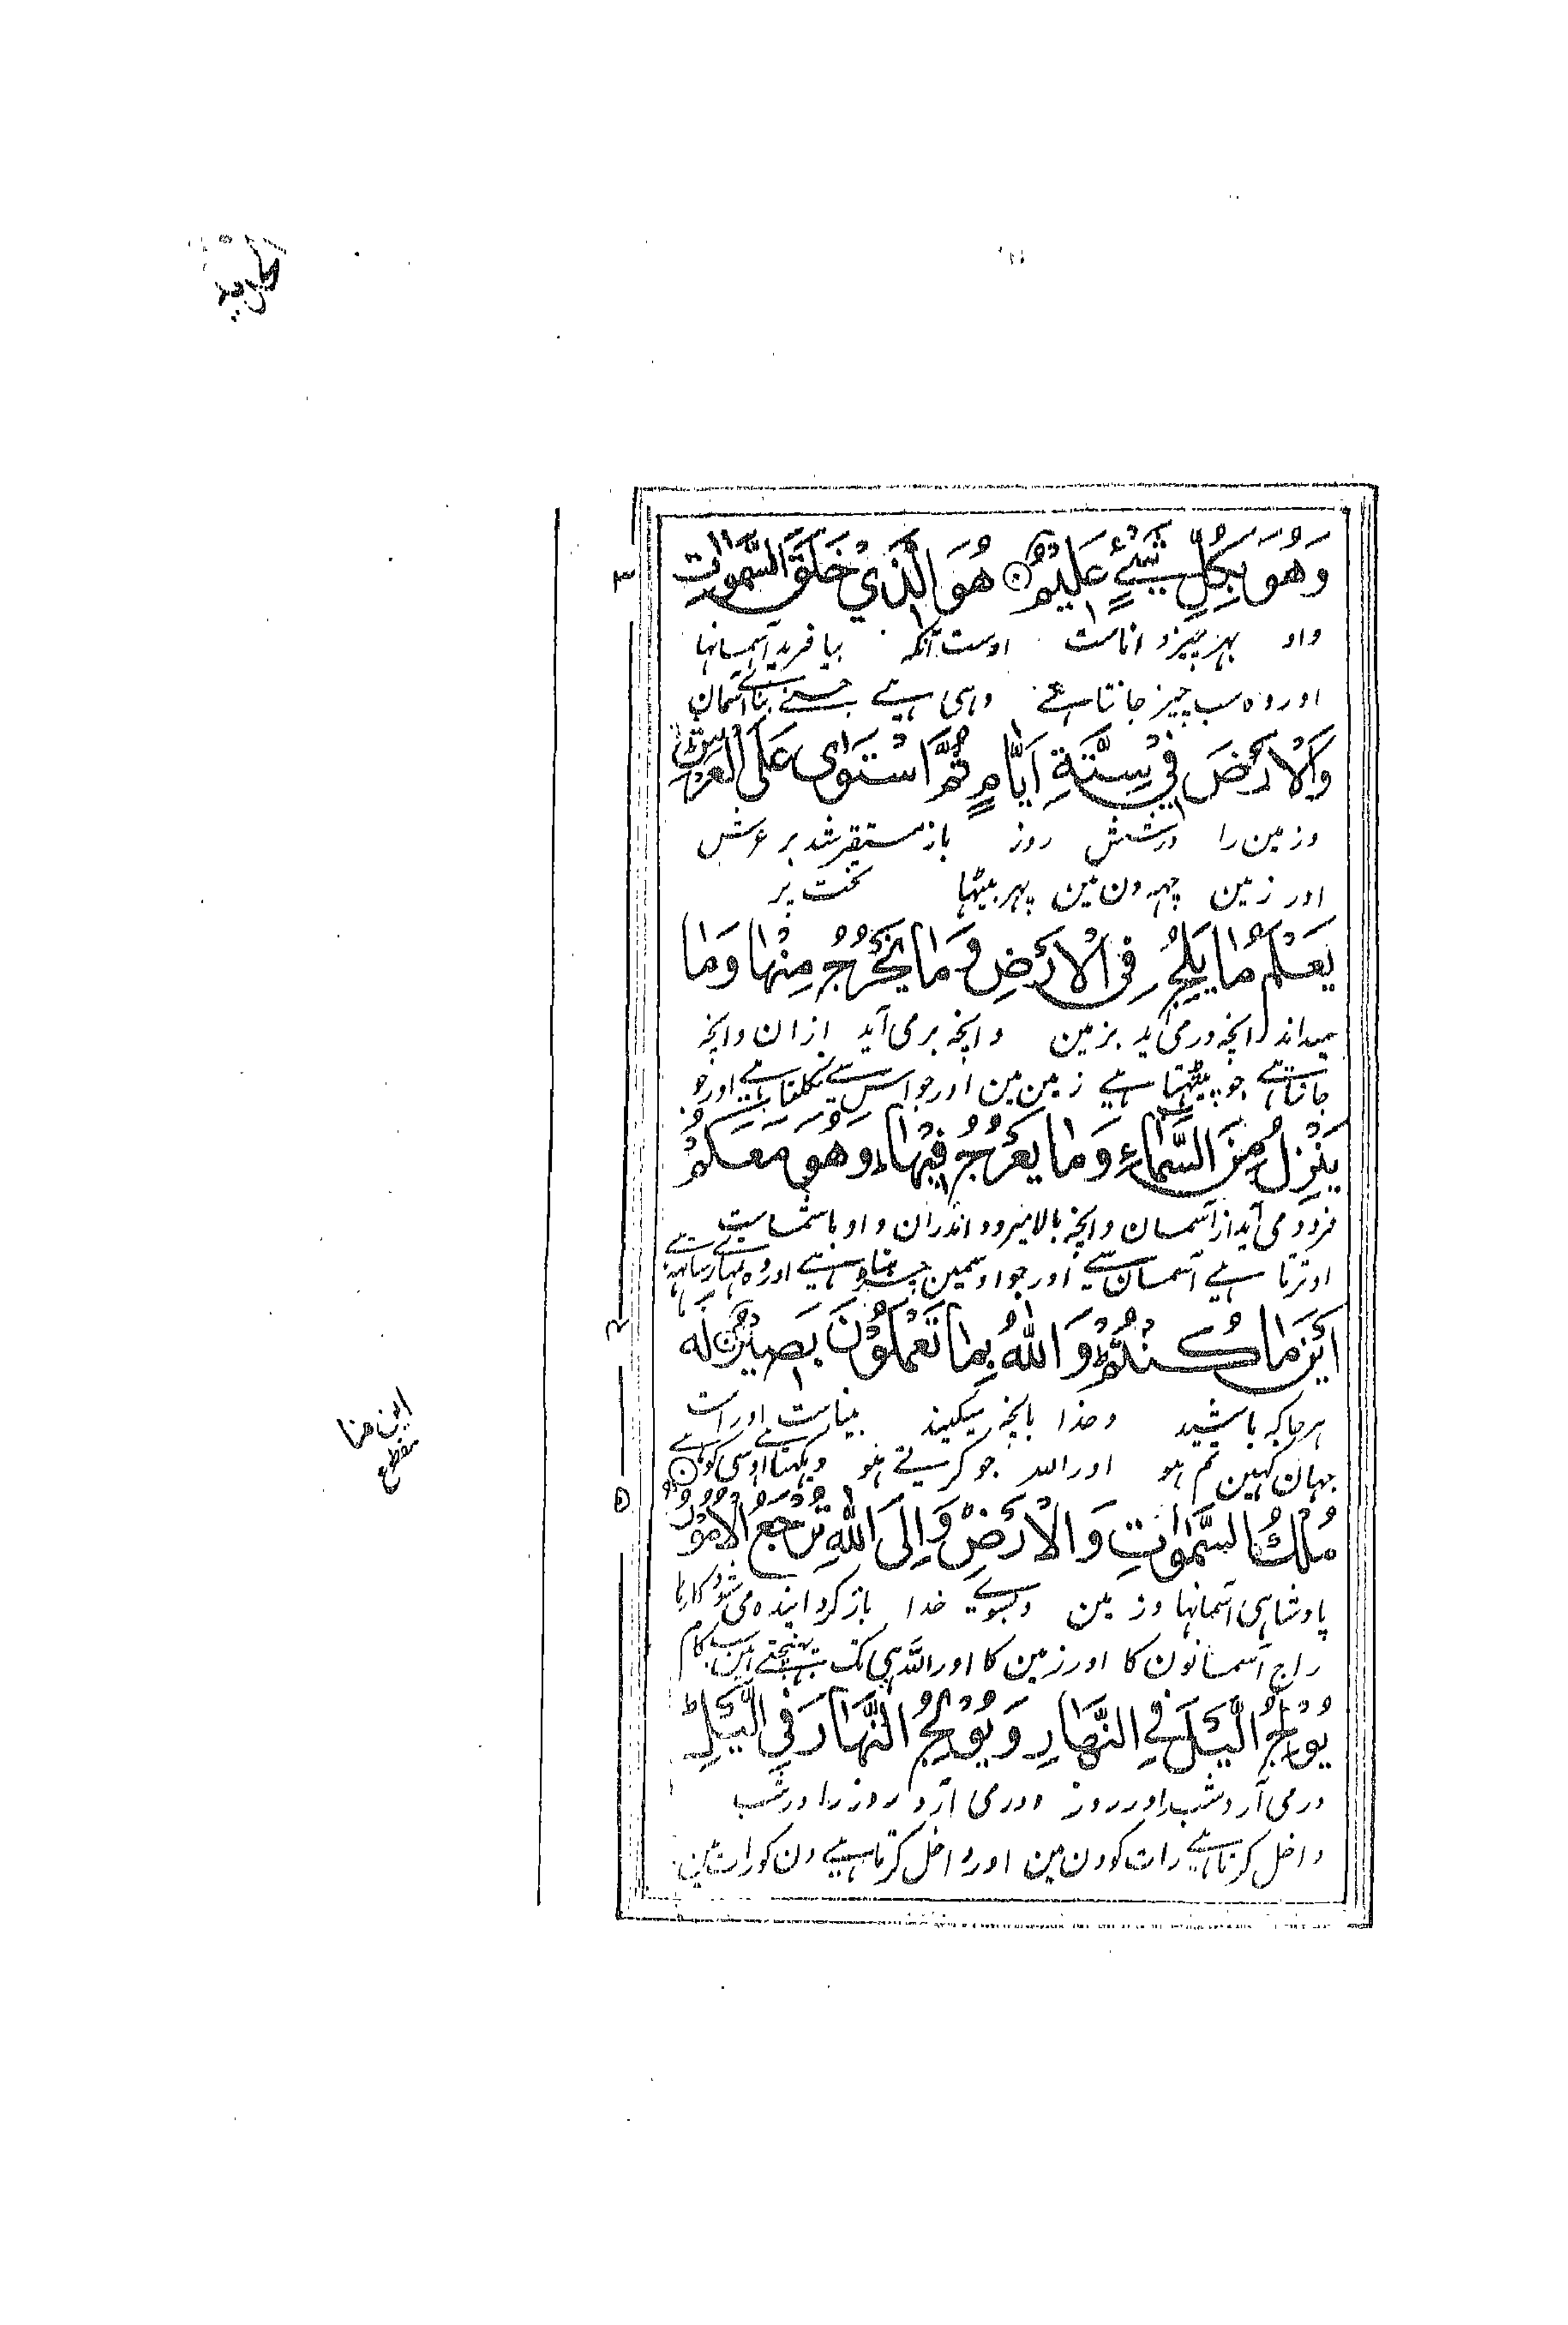 وَهُوَ بِكُلِّ شَيْءٍ عَلِيْمٌ ۝ هُوَ الَّذِيْ خَلَقَ السَّمٰوٰتِ
واو بہر چیز دانا ست اوست آنکہ بیافرید آسمانہا
اور وہ سب چیز جانتا ہے وہی ہے جسنے بنائے آسمان
وَالْاَرْضَ فِيْ سِتَّةِ اَيَّامٍ ثُمَّ اسْتَوٰى عَلَى الْعَرْشِ
وزمین را درشش روز باز مستقر شد بر عرش
اور زمین چہہ دن مین پہر بیٹہا تخت پر
يَعْلَمُ مَا يَلِجُ فِى الْاَرْضِ وَمَا يَخْرُجُ مِنْهَا وَمَا
میداند انچہ درمی آید بزمین وانچہ برمی آید ازان وانچہ
جانتا ہے جو پیٹہتا ہے زمین مین اور جو اس سے نکلتا ہے اور جو
يَنْزِلُ مِنَ السَّمَآءِ وَمَا يَعْرُجُ فِيْهَا وَهُوَ مَعَكُمْ
فرود می آید از آسمان وانچہ بالا میرود اندران واو باشماست
اوترتا ہے آسمان سے اور جو اوسمین چڑہتا ہے اور وہ تمہارے ساتہہ ہے
اَيْنَ مَا كُنْتُمْ وَاللّٰهُ بِمَا تَعْمَلُوْنَ بَصِيْرٌ ۝ لَهٗ
ہرجاکہ باشید وخدا بانچہ میکنید بیناست اوراست
جہان کہین تم ہو اور اللہ جو کرتے ہو دیکہتا ہے اوسی کو ہے
مُلْكُ السَّمٰوٰتِ وَالْاَرْضِ وَاِلَى اللّٰهِ تُرْجَعُ الْاُمُوْرُ ۝
پادشاہی آسمانہا وزمین وبسوے خدا باز گردانیدہ می شود کارہا
راج آسمانون کا اور زمین کا اور اللہ ہی تک پہنچتے ہین سب کام
يُوْلِجُ الَّيْلَ فِي النَّهَارِ وَيُوْلِجُ النَّهَارَ فِي الَّيْلِ ط
درمی آرد شب را در روز ودرمی آرد روز را در شب
داخل کرتا ہے رات کو دن مین اور داخل کرتا ہے دن کو رات مین
۳
۴
۵